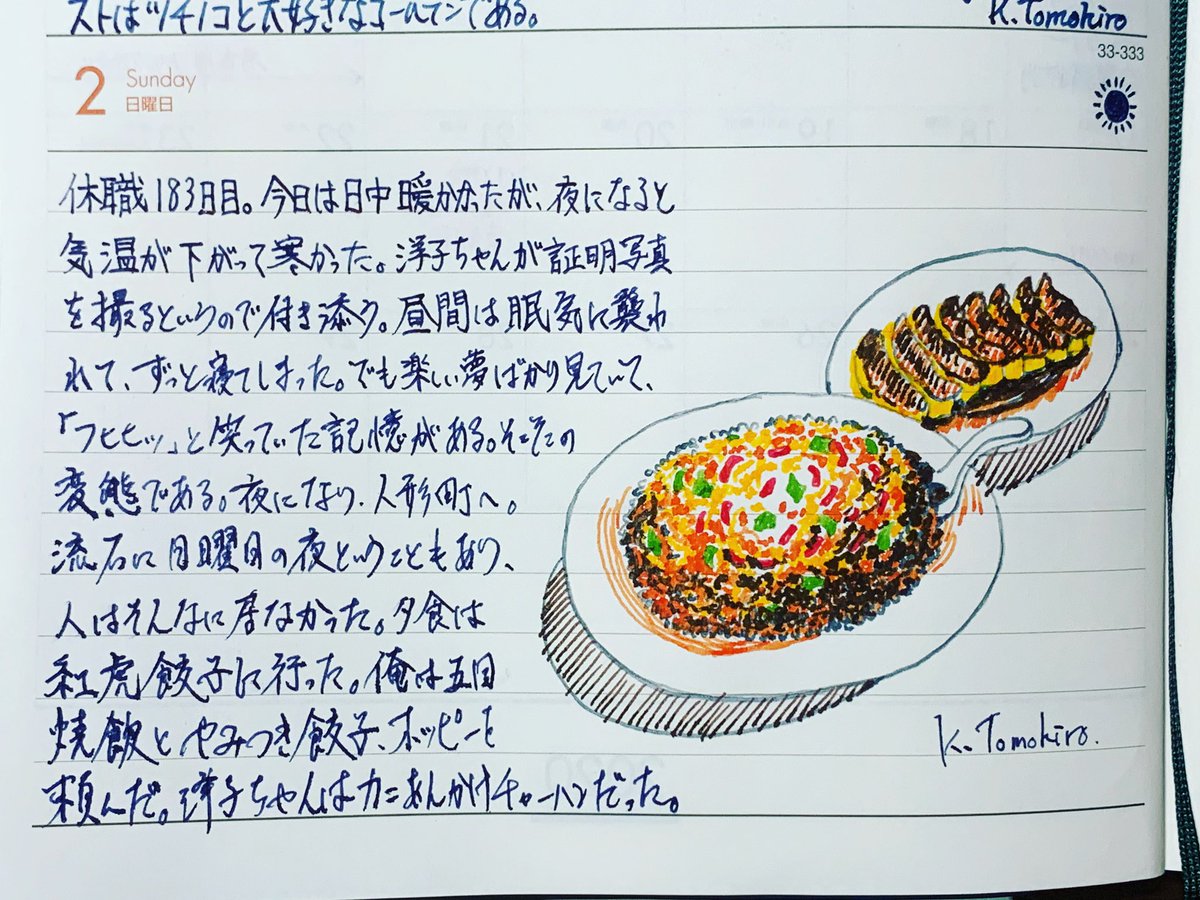 ストはツチノコと大好きなゴールデンである。
K.Tomohiro
33-333
2 Sunday
日曜日
休職183日目。今日は日中暖かかったが、夜になると
気温が下がって寒かった。洋子ちゃんが証明写真
を撮るというので付き添う。昼間は眠気に襲わ
れて、ずっと寝てしまった。でも楽しい夢ばかり見ていて、
「フヒヒッ」と笑っていた記憶がある。そこそこの
変態である。夜になり、人形町へ。
流石に日曜日の夜ということもあり、
人はそんなに居なかった。夕食は
紅虎餃子に行った。俺は五目
焼飯とやみつき餃子、ホッピーを
頼んだ。洋子ちゃんはカニあんかけチャーハンだった。
K.Tomohiro.